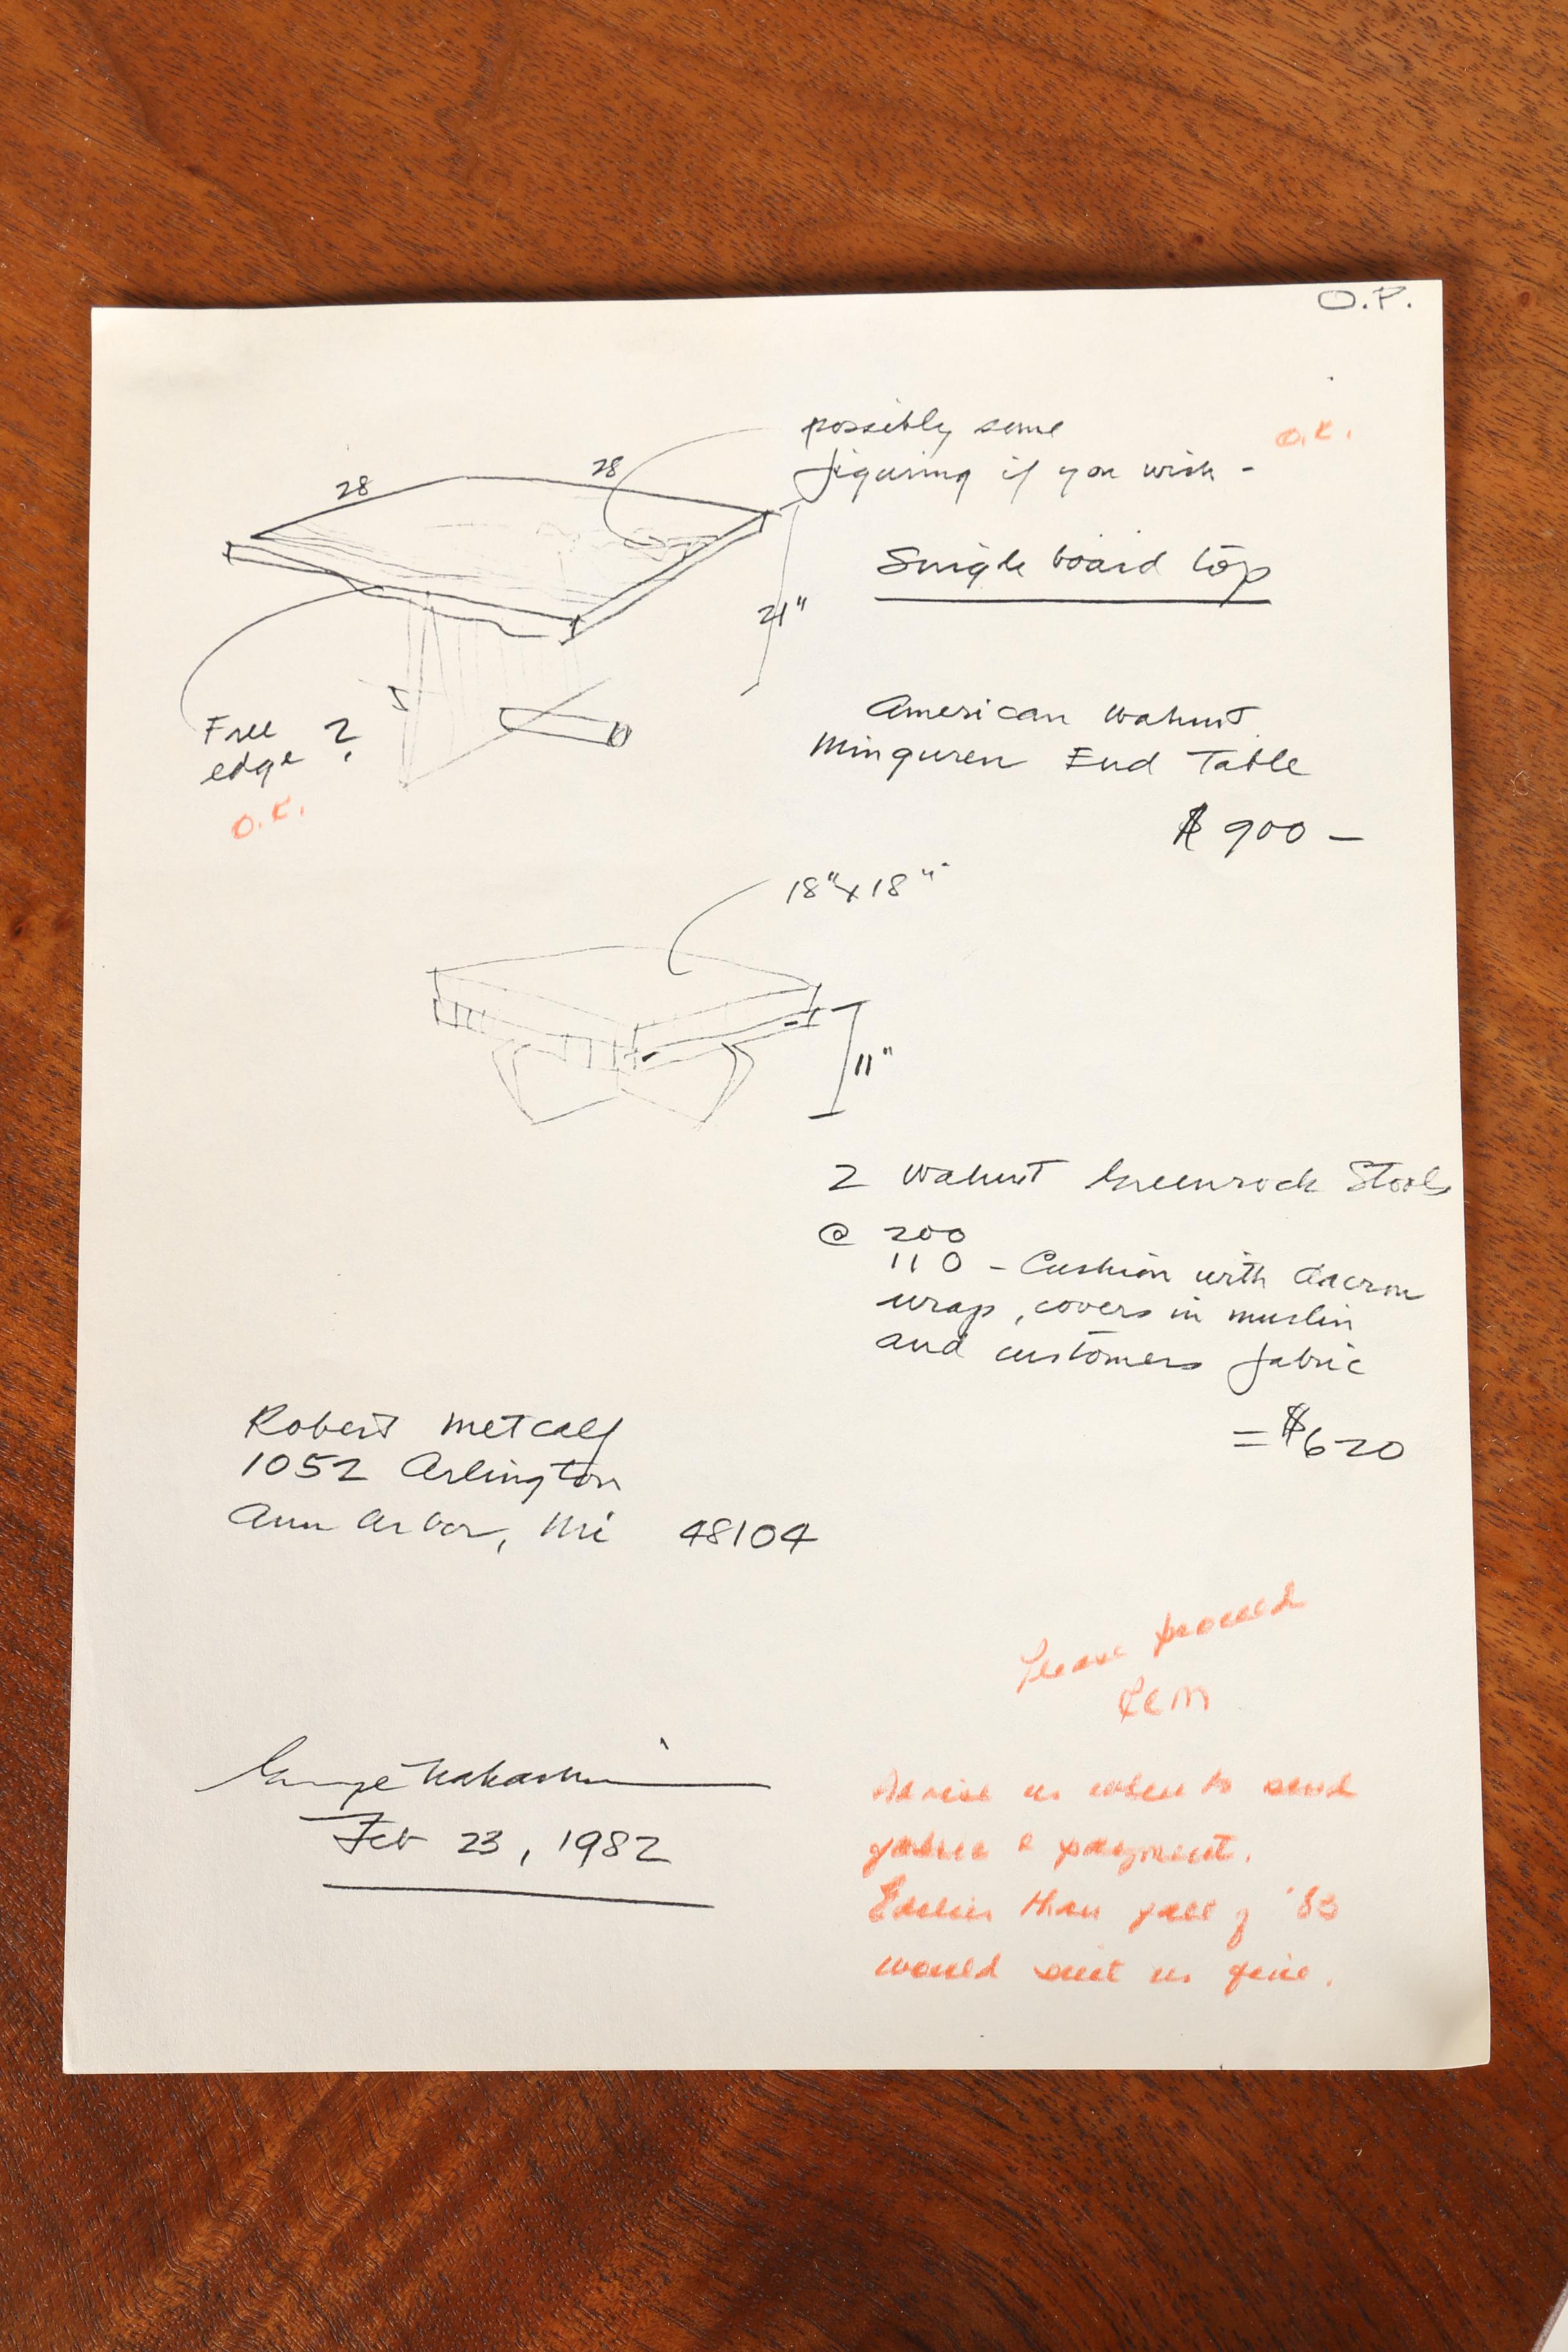 O.P.
possibly some
figuring if you wish -
O.K.
28
28
Single board top
21"
Free
edge ?
O.K.
American Walnut
Minguren End Table
$ 900 —
18" x 18"
11"
2 Walnut Greenrock Stools
@ 200
110 - Cushion with dacron
wrap, covers in muslin
and customers fabric
= $620
Robert Metcalf
1052 Arlington
Ann Arbor, Mi 48104
Please proceed
RCM
George Nakashima
Feb 23, 1982
Advise us when to send
fabric & payment.
Earlier than fall of '83
would suit us fine.